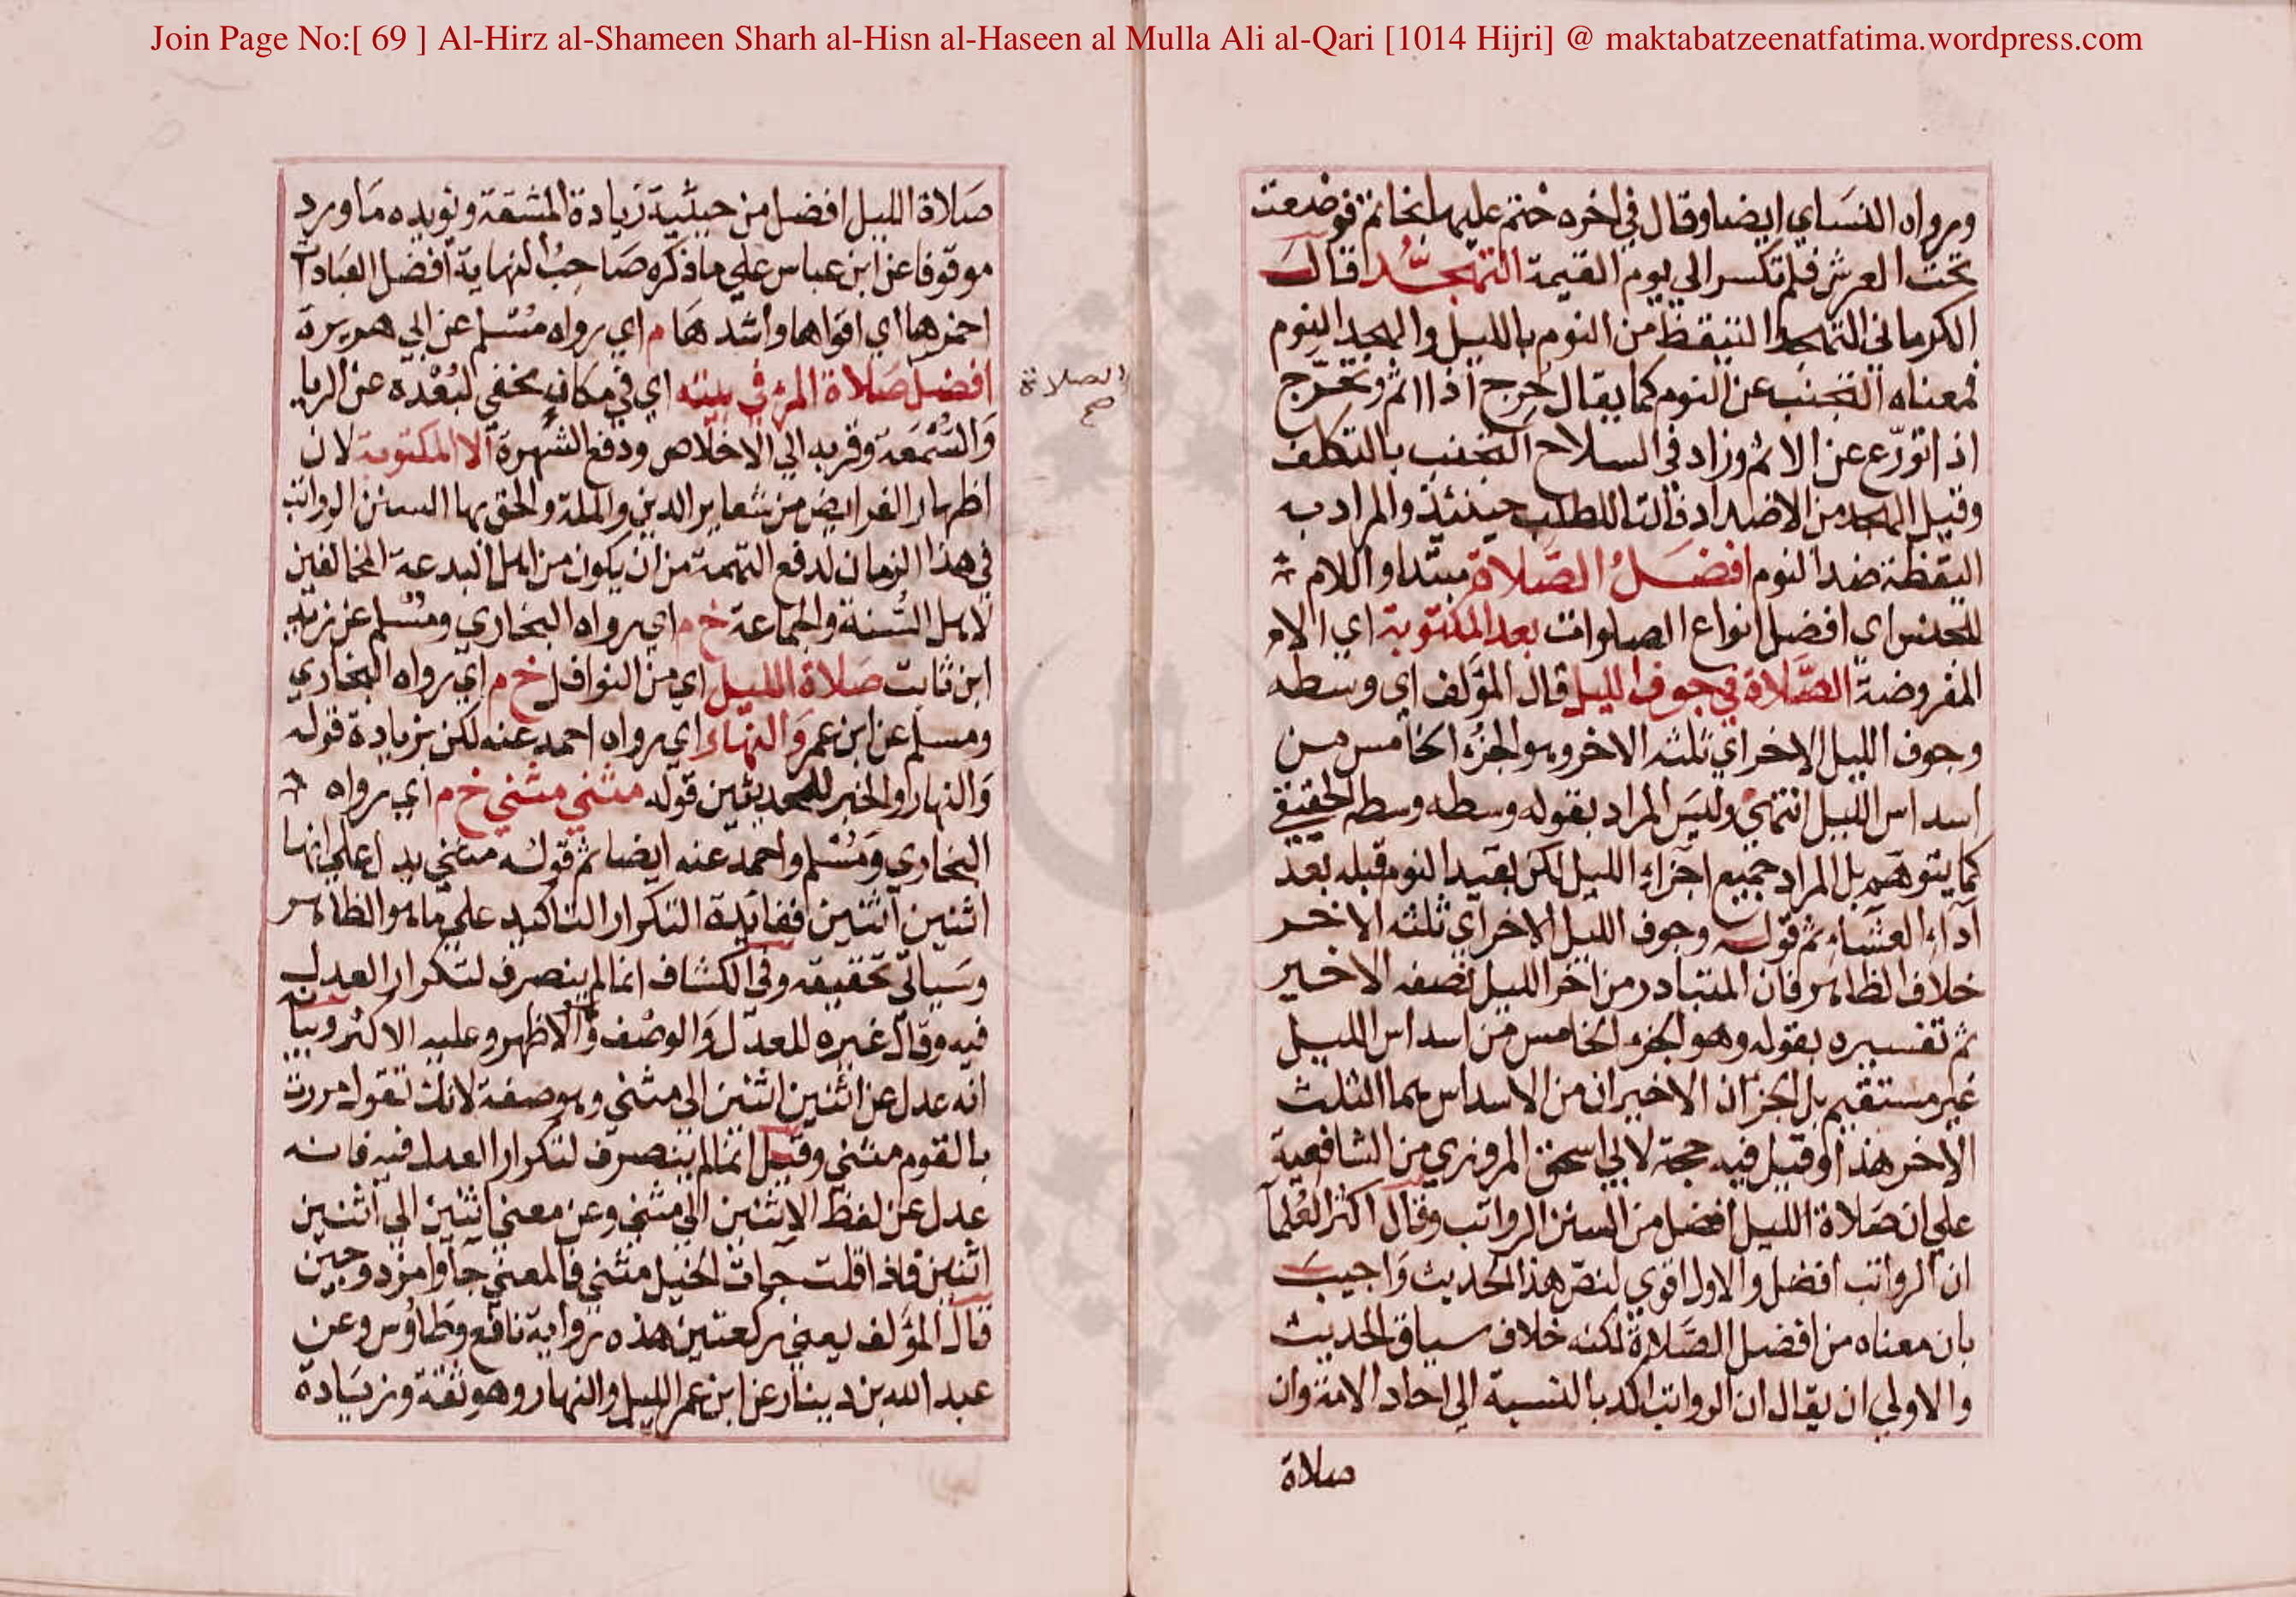 Join Page No:[ 69 ] Al-Hirz al-Shameen Sharh al-Hisn al-Haseen al Mulla Ali al-Qari [1014 Hijri] @ maktabatzeenatfatima.wordpress.com
ورواه النسَاي ايضا وقال في اخره ختم عليها بخاتم فوضعت
تحت العرش فلم تكسر الى يوم القيمة التهجُّد قال
الكرماني التهجد التيقظ من النوم بالليل والهجد النوم
فمعناه التجنب عن النوم كما يقال حرج اذا اثم وتحرّج
اذا تورّع عن الاثم وزاد في السلاح التجنب بالتكلف
وقيل الهجد من الاضداد فالتا للطلب حينئذ والمراد به
اليقظة ضد النوم افضلُ الصَّلاة مبتدا واللام
للجنس اي افضل انواع الصلوات بعد المكتوبة اي الا
المفروضة الصَّلاة في جوف الليل قال المؤلف اي وسطه
وجوف الليل الاخر اي ثلثه الاخر وهو الجزء الخامس من
اسداس الليل انتهي وليس المراد بقوله وسطه وسطه الحقيقي
كما يتوهم بل المراد جميع اجزاء الليل لكن بقيد النوم قبله بعد
اداء العشاء ثم قوله وجوف الليل الاخر اي ثلثه الاخر
خلاف الظاهر فان المتبادر من اخر الليل نصفه الاخير
ثم تفسيره بقوله وهو الجزء الخامس من اسداس الليل
غير مستقيم بل الجزآن الاخيران من الاسداس هما الثلث
الاخر هذا وقيل فيه حجة لابي اسحق المروزي من الشافعية
علي ان صَلاة الليل افضل من السنن الرواتب وقال اكثر العُلمآ
ان الرواتب افضل والاول اقوي لنصّ هذا الحديث وَاجيب
بان معناه من افضل الصَّلاة لكنه خلاف سياق الحديث
والاولي ان يقال ان الرواتب اكد بالنسبة الى احاد الامة وان
صلاة
صَلاة الليل افضل من حيثية زيادة المشقة ويؤيده مَا ورد
موقوفا عن ابن عباس علي ما ذكره صَاحبُ النهاية افضل العبَادات
احمزها اي اقواها واشدهَا م اي رواه مُسْلم عن ابي هريرة
افضل صَلاة المرء في بيته اي في مكان مخفي لبُعْده عن الريا
وَالسُّمعَة وقربه الي الاخلاص ودفع الشهرة الا المكتوبة لان
الصلاة
صح
اظهار الفرايض من شعاير الدين والملة والحق بها السنن الرواتب
في هذا الزمان لدفع التهمة من ان يكون من اهل البدعة المخالفين
لاهل السُّنة والجماعة خ م اي رواه البخاري ومُسْلم عن زيد
ابن ثابت صَلاة الليل اي من النوافل خ م اي رواه البخاري
ومسلم عن ابن عمر وَالنهار اي رواه احمد عنه لكن بزيادة قوله
وَالنهار والخبر للحديثين قوله مثني مثني خ م اي رواه
البخاري ومُسْلم واحمد عنه ايضا ثم قولُه مثني يدل علي انها
اثنين اثنين ففائدة التكرار التاكيد علي ما هو الظاهر
وسَياتي تحقيقه وفي الكشاف انما لم ينصرف لتكرار العدل
فيه وقال غيره للعدل وَالوصف والاظهر وعليه الاكثر وبيانه
انه عدل عن اثنين اثنين الى مثني وهو صفة لانك تقول مررت
بالقوم مثني وقيل انما لم ينصرف لتكرار العدل فيه فانه
عدل عن لفظ الاثنين الي مثني وعن معني اثنين الي اثنين
اثنين فاذا قلت جاءت الخيل مثني فالمعني جآوا مزدوجين
قال المؤلف يعني ركعتين هذه رواية نافع وطَاوُس وعن
عبد الله بن دينار عن ابن عمر الليل والنهار وهو ثقة وزيَادة